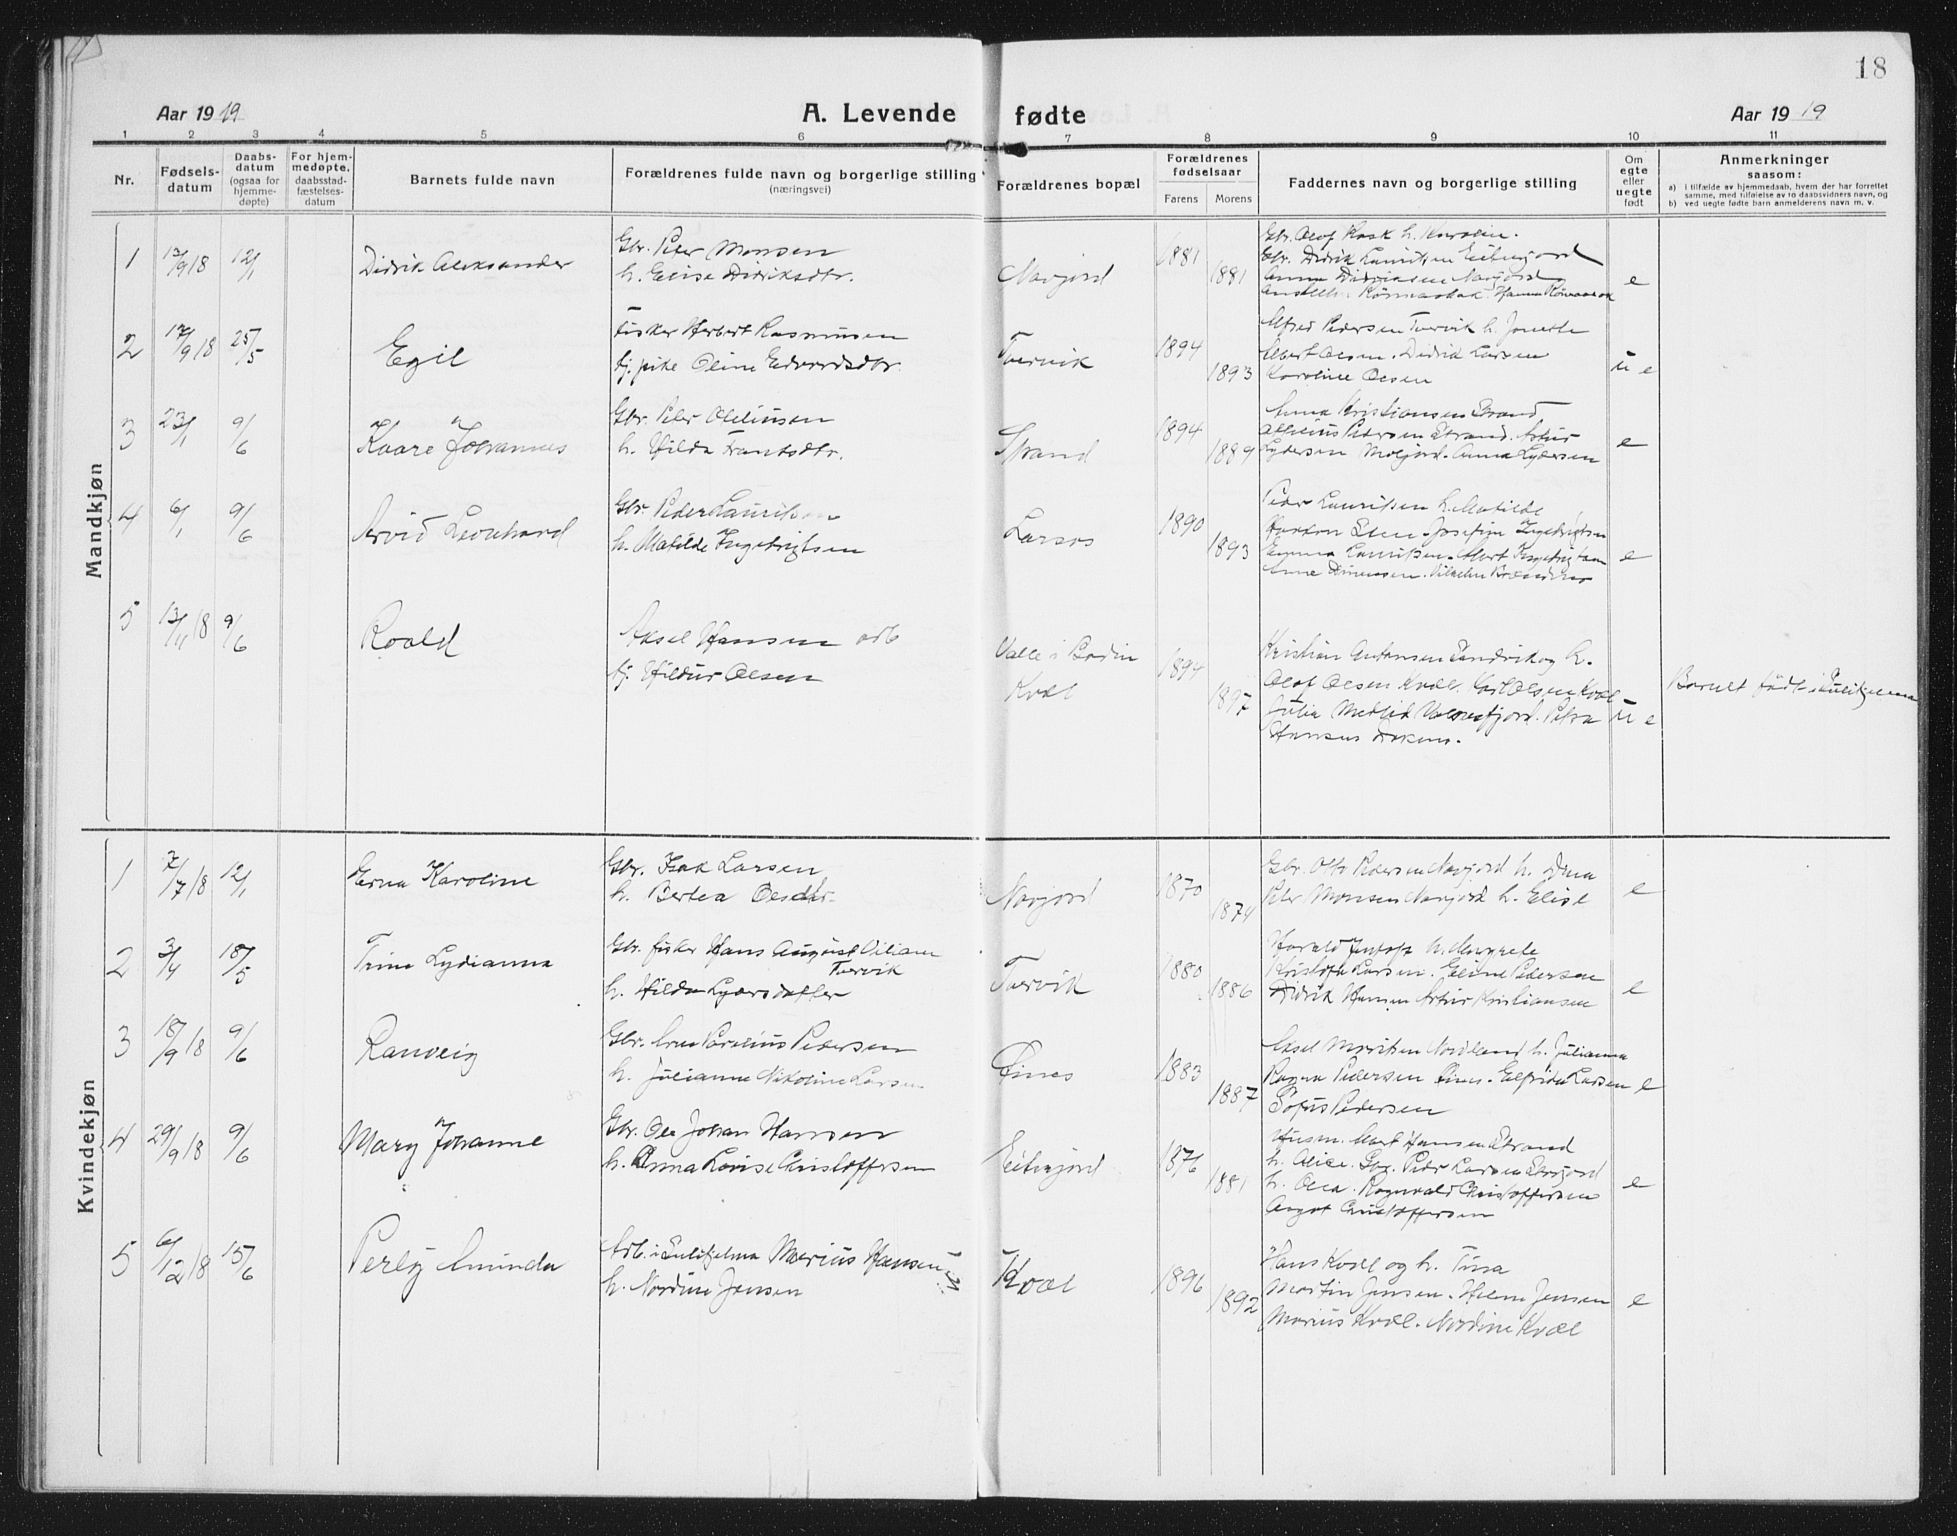 18
Aar 1919
A. Levende fødte
Aar 1919
1 2 3 4 5 6 7 8 9 10 11
Nr.
Fødsels-
datum
Daabs-
datum
(ogsaa for
hjemme-
døpte)
For hjem-
medøpte,
daabsstad-
fæstelses-
datum
Barnets fulde navn
Forældrenes fulde navn og borgerlige stilling
(næringsvei)
Forældrenes bopæl
Forældrenes
fødselsaar
Farens Morens
Faddernes navn og borgerlige stilling
Om
egte
eller
uegte
født
Anmerkninger
saasom:
a) i tilfælde av hjemmedaab, hvem der har forrettet
samme, med tilføielse av to daabsvidners navn, og
b) ved uegte fødte barn anmelderens navn m. v.
Mandkjøn
1 13/9 18 12/1 Didrik Aleksander
Gbr. Peter Monsen
h. Elise Didriksdtr.
Navjord 1881 1881
Gbr. Olof Kosk h.
Gbr. Didrik Lauritsen
Anna Didriksen Navjord
e
2 17/9 18 25/5 Egil
Fisker Herbert Rasmussen
tj. pike Oline Edvardsdtr.
Tuervik 1894 1893
Alfred Pedersen Tuervik h.
Albert Olsen. Didrik Larsen
Karoline Olsen
u e
3 23/1 9/6 Kaare Johannes
Gbr. Peter Otelinsen
h. Hilda Frantsdtr.
Strand 1894 1889
Anna Kristiansen Strand
Pedersen Strand. Artur
Lydersen Moljord. Anna Lydersen
e
4 6/1 9/6 Arvid Leonhard
Gbr. Peder Lauritsen
h. Matilde Ingebrigtsen
Larsos 1890 1893
Peder Lauritsen h. Matilde
Josefine Ingebrigtsen
Emma Lauritsen. Albert Ingebrigtsen
Vilhelm
e
5 13/11 18 9/6 Roald
Aksel Hansen arb
tj. Hildur Olsen
Valle i Bodin
Kvæl
1894 1897
Kristian Antonsen Sandvik og h.
Olaf Olsen Kvæl. Karl Olsen Kvæl
Julia Valnesfjord. Petra
Hansen
u e
Barnet født i Sulitjelma
Kvindekjøn
1 7/7 18 12/1 Erna Karoline
Gbr. Isak Larsen
h. Bertea Olsdtr.
Navjord 1870 1874
Gbr. Otto Pedersen Navjord h. Dina
Peter Monsen Navjord h. Elise
e
2 3/4 18/5 Trine Lydianna
Gbr. fisker Hans August Viliam
Tuervik
h. Hilda Lydersdatter
Tuervik 1880 1886
Harald h. Margrete
Kristofer Larsen. Eline Pedersen
Didrik Hansen Artur Kristiansen
e
3 18/9 18 9/6 Ranveig
Gbr. Arne Parelius Pedersen
h. Julianne Nikoline Larsen
Fines 1883 1887
Aksel Moritsen Nordland h. Julianna
Ragna Pedersen Fines. Elfrida Larsen
Sofus Pedersen
e
4 29/9 18 9/6 Mary Johanne
Gbr. Ole Johan Hansen
h. Anna Lovise Kristoffersen
Eiterjord 1876 1881
Husm. Albert Hansen Strand
h. Alice. Gbr. Peder Larsen
h. Olea. Ragnvald Christoffersen
Aagot Christoffersen
e
5 6/12 18 15/6 Perly Aminda
Arb. i Sulitjelma Marius Hansen
h. Nordine Jensen
Kvæl 1896 1892
Hans Kvæl og h. Tina
Martin Jensen. Helene Jensen
Marius Kvæl. Nordine Kvæl
e